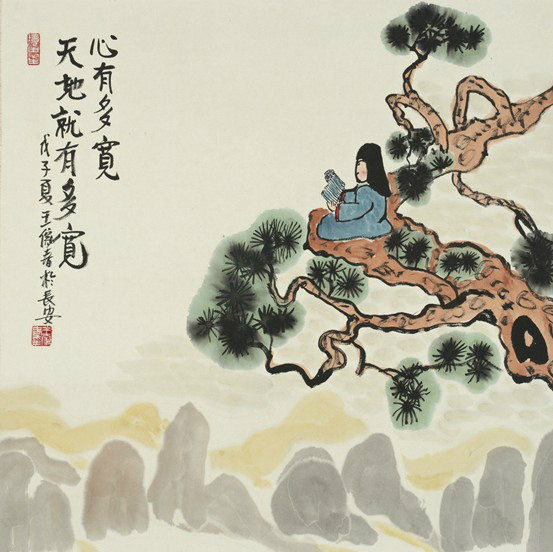 心有多寬
天地就有多寬
戊子夏王於長安